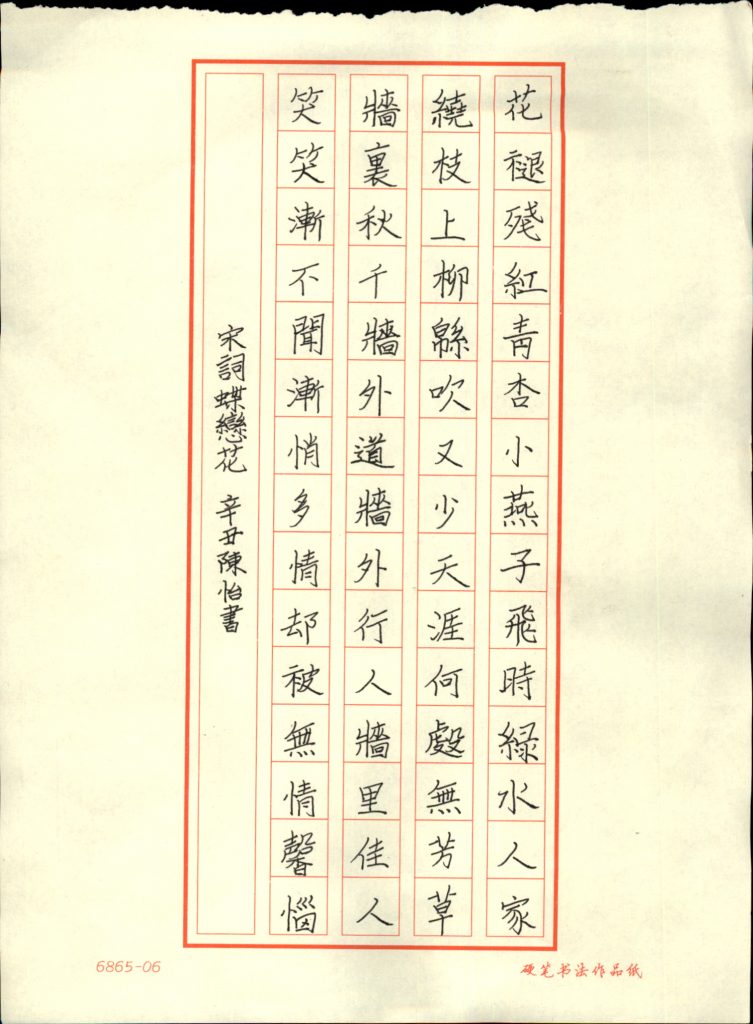 花褪殘紅青杏小燕子飛時緑水人家
繞枝上柳緜吹又少天涯何處無芳草
牆裏秋千牆外道牆外行人牆里佳人
笑笑漸不聞漸悄多情却被無情馨惱
宋詞蝶戀花 辛丑陳怡書
6865-06
硬笔书法作品纸